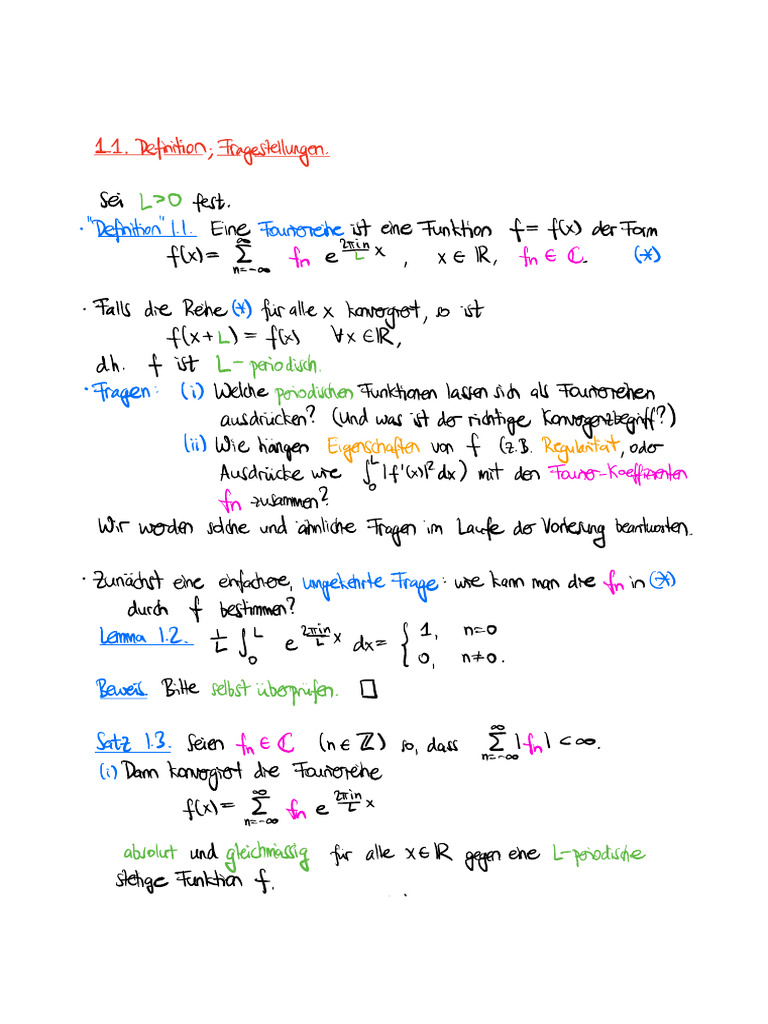 1.1. Definition; Fragestellungen.
Sei L>0 fest.
· "Definition" 1.1. Eine Fourierreihe ist eine Funktion f = f(x) der Form
f(x) = ∑_{n=-∞}^{∞} fn e^{\frac{2πin}{L}x} , x ∈ ℝ, fn ∈ ℂ. (*)
· Falls die Reihe (*) für alle x konvergiert, so ist
f(x+L) = f(x) ∀x ∈ ℝ,
d.h. f ist L-periodisch.
· Fragen: (i) Welche periodischen Funktionen lassen sich als Fourierreihen
ausdrücken? (Und was ist der richtige Konvergenzbegriff?)
(ii) Wie hängen Eigenschaften von f (z.B. Regularität, oder
Ausdrücke wie ∫_0^L |f'(x)|² dx) mit den Fourier-Koeffizienten
fn zusammen?
Wir werden solche und ähnliche Fragen im Laufe der Vorlesung beantworten.
· Zunächst eine einfachere, umgekehrte Frage: wie kann man die fn in (*)
durch f bestimmen?
Lemma 1.2. \frac{1}{L} ∫_0^L e^{\frac{2πin}{L}x} dx = { 1, n=0
0, n≠0.
Beweis. Bitte selbst überprüfen. □
Satz 1.3. Seien fn ∈ ℂ (n ∈ ℤ) so, dass ∑_{n=-∞}^{∞} |fn| < ∞.
(i) Dann konvergiert die Fourierreihe
f(x) = ∑_{n=-∞}^{∞} fn e^{\frac{2πin}{L}x}
absolut und gleichmässig für alle x ∈ ℝ gegen eine L-periodische
stetige Funktion f.